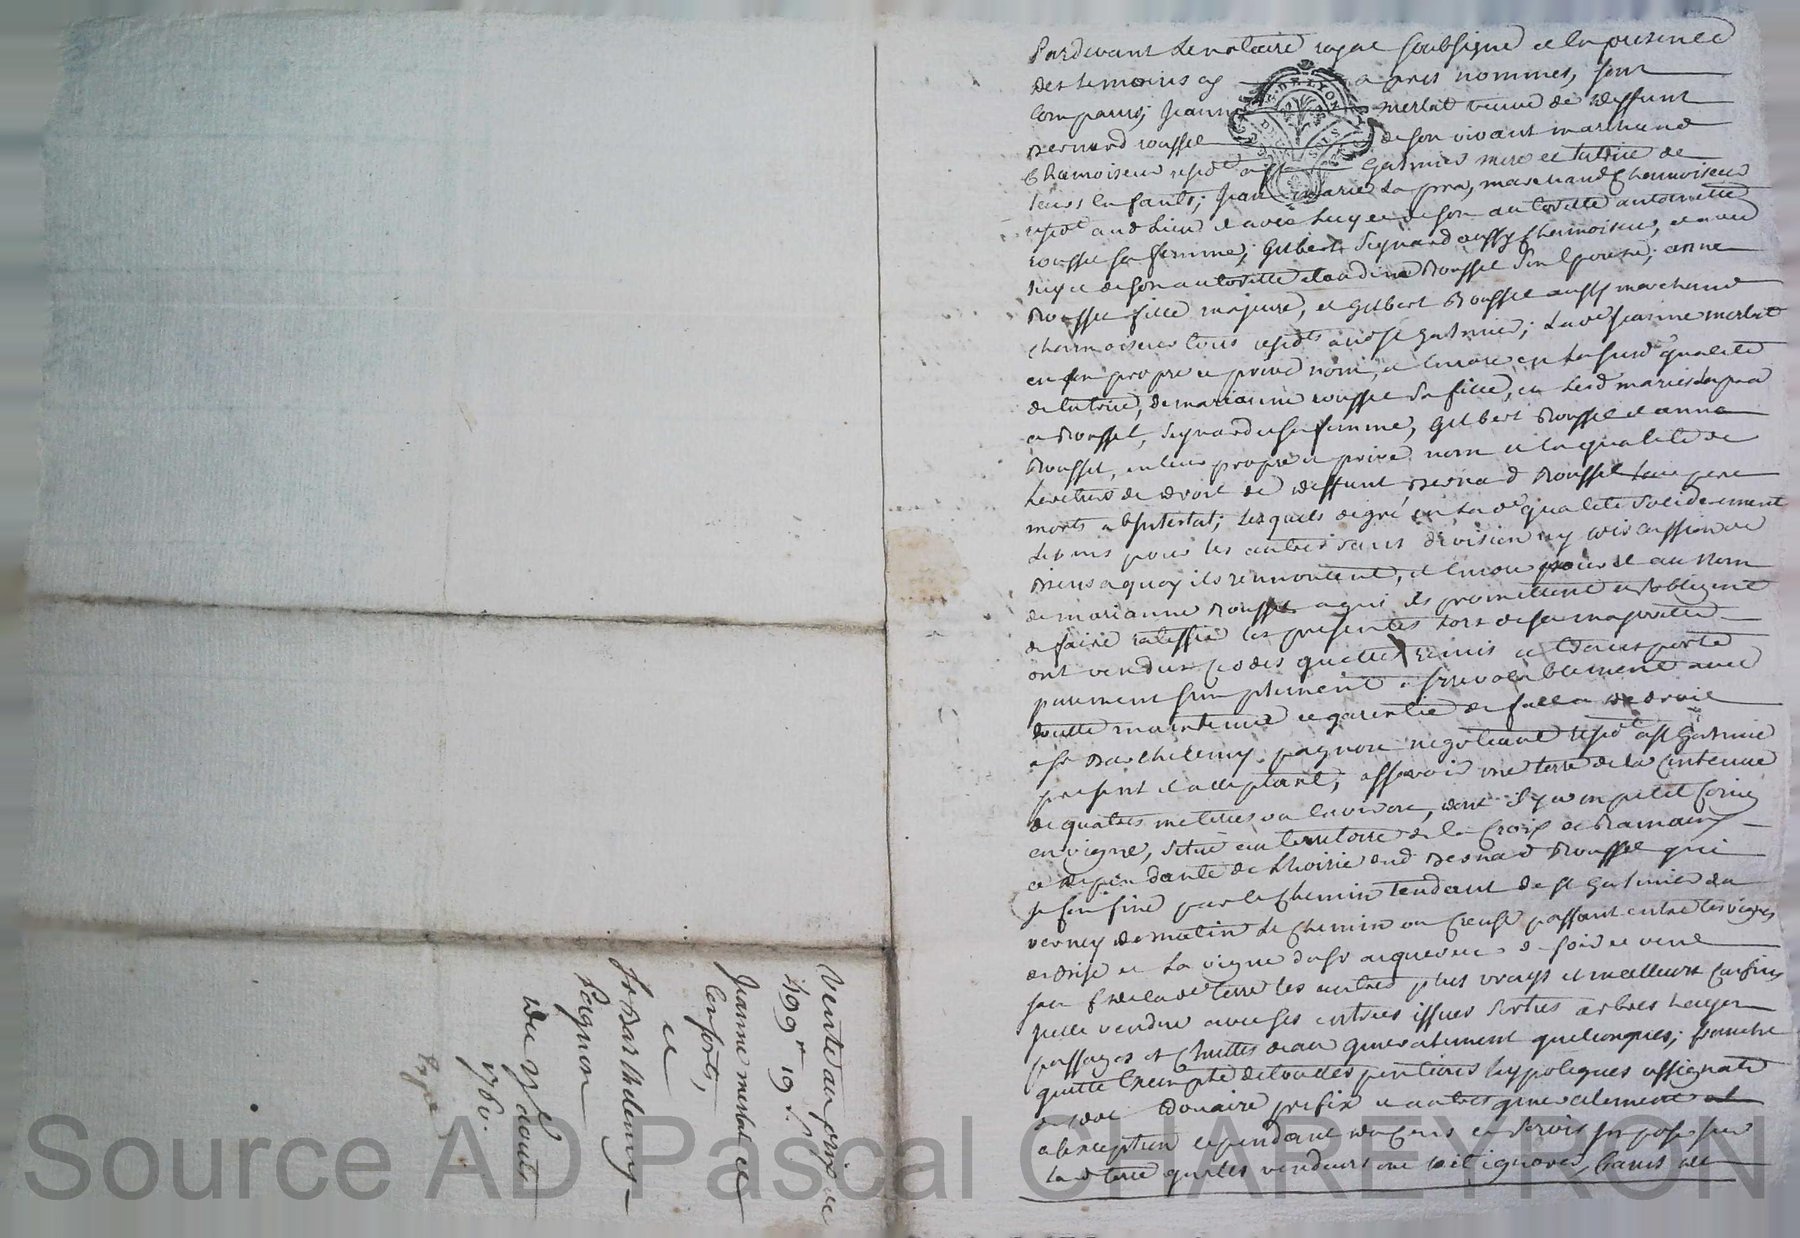 Pardevant Le notaire royal soubsigné et En presence
des temoins cy apres nommés, sont
Comparus, Jeanne merlat veuve de deffunt
Bernard rousset de son vivant marchand
Chamoiseur resid.t a Galmier mere et tutrice de
leurs Enfants; Jean marie Lapra, marchand Chamoiseur
resid.t aud Lieu et avec luy et de son authoritté antoinette
rousset sa femme; Gilbert Seynard aussy Chamoiseur, et avec
luy et de son authoritté claudine Rousset son Epouse; anne
Rousset fille majeure, et Gilbert Rousset aussy marchand
chamoiseur tous resid.ts aud St Galmier; Lad.e Jeanne merlat
en son propre et privé nom, et Encore en La susd qualité
de tutrice, de marianne rousset sa fille, et Lesd mariés Lapra
et Rousset, Seynard et sa femme, Gilbert Rousset et anne
Rousset, en leur propre et privé nom et la qualité de
heritiers de droit de deffunt Bernard Rousset Leur pere
morts abJntestat; Lesquels de gré en Lad.e qualité solidairement
Lun pour les autres sans division ny discussion de
Biens a quoy ils rennoncent, et Encore au Nom
de marianne Rousset a qui ils promettent et sobligent
de faire ratiffier les presentes Lors de sa majoritté
ont vendu Cedés quitté remis et transporté
purement simplement Jrrevocablement avec
toutte maintenue et garentie de fait et de droit
a Sr Barthelemy pagnon negotiant resid.t a St Galmier
present et acceptant, assavoir une terre de la Contenue
de quatres metterées ou Environ, dont il y a un petit Coin
en vigne, situé au territoire de la Croix de Ramain
et dependante de Lhoirie dud Bernard Rousset qui
se Confine par le Chemin tendant de St Galmier au
verney de matin Le Chemin ou Creuse passant entre les vignes
de bise et La vigne du Sr de soir et vent
sauf de lad.e terre les autres plus vrays et meilleurs Confins
Jcelle vendue avec ses entrées issues sorties arbres hayes
passages et Chuttes deau generalement quelconques; franche
quitte Exempte de touttes pentions hypoteques assignats
de dot douaire prefix et autres generalement
a Exception cependant du Cens et servis Jmposé sur
Lad terre que les vendeurs ont dit ignorer, francs de
Vente au prix de
499 lt 19 s
Jeanne merlat et
Consorts,
et
Sr Barthelemy
Pagnon
Du 25 aoust
1760.
Source AD Pascal CHAREYRON